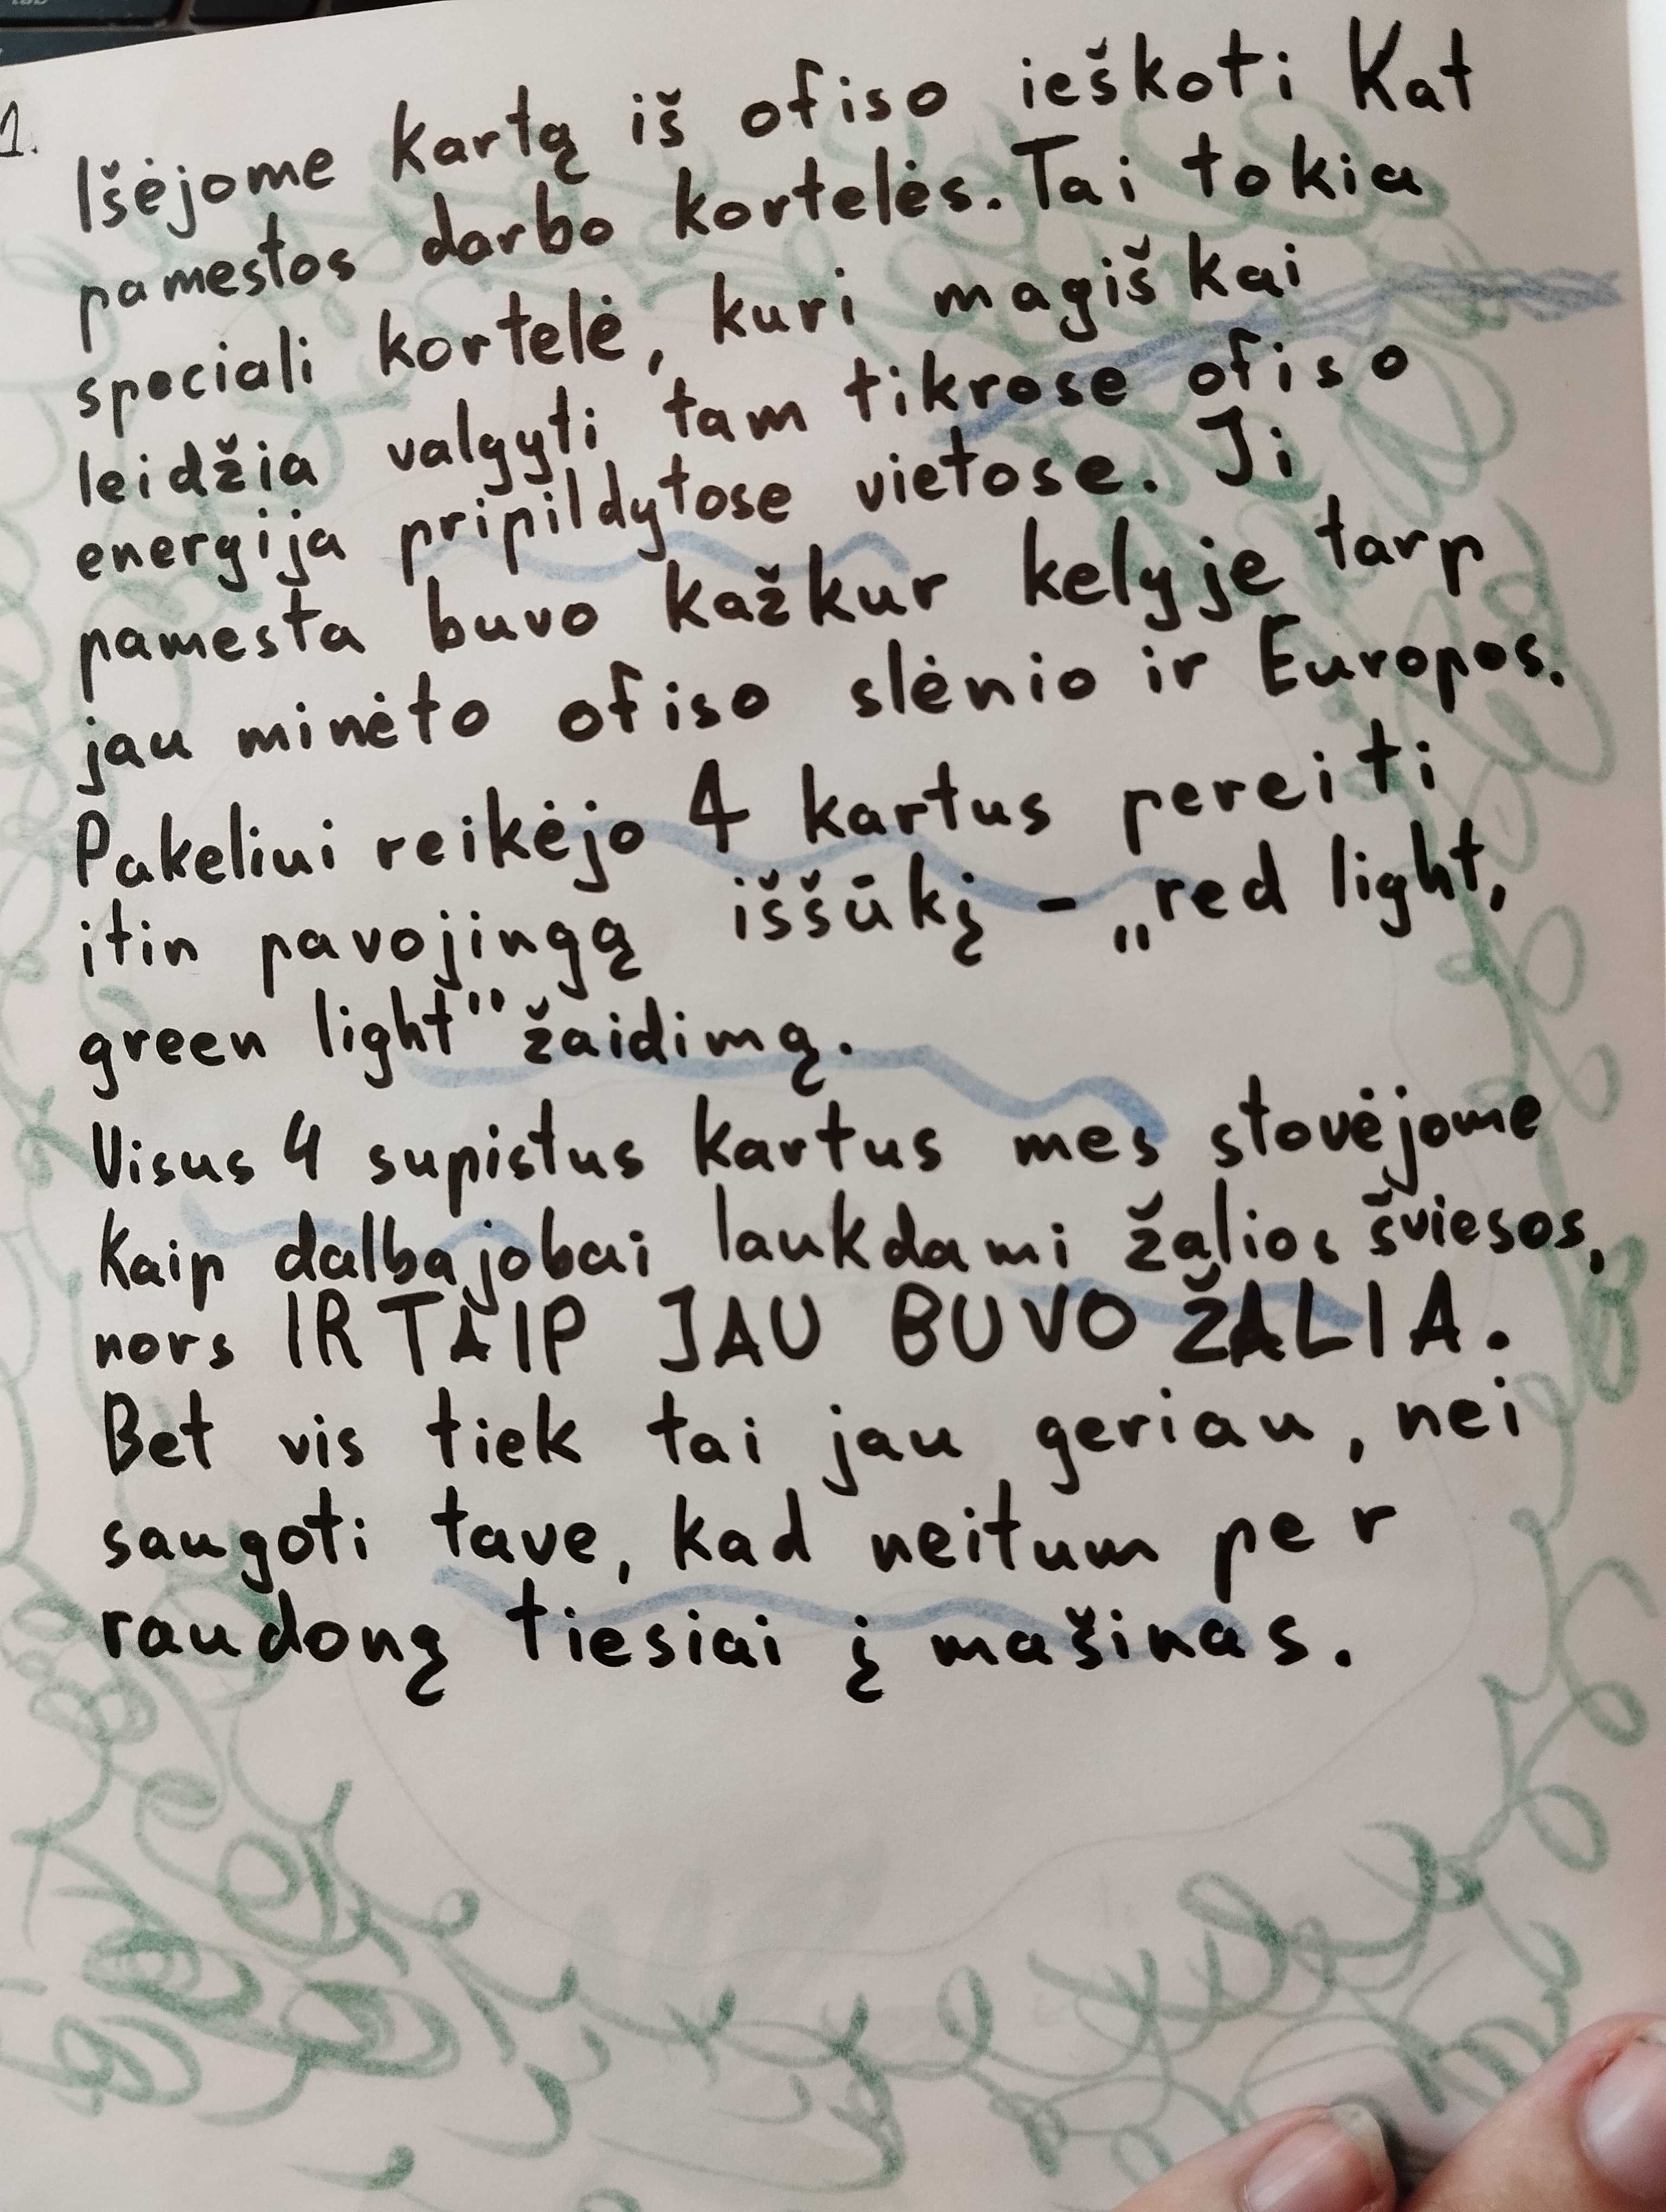 1.
Išėjome kartą iš ofiso ieškoti Kat
pamestos darbo kortelės. Tai tokia
speciali kortelė, kuri magiškai
leidžia valgyti tam tikrose ofiso
energija pripildytose vietose. Ji
pamesta buvo kažkur kelyje tarp
jau minėto ofiso slėnio ir Europos.
Pakeliui reikėjo 4 kartus pereiti
itin pavojingą iššūkį - „red light,
green light" žaidimą.
Visus 4 supistus kartus mes stovėjome
kaip dalbajobai laukdami žalios šviesos,
nors IR TAIP JAU BUVO ŽALIA.
Bet vis tiek tai jau geriau, nei
saugoti tave, kad neitum per
raudoną tiesiai į mašinas.